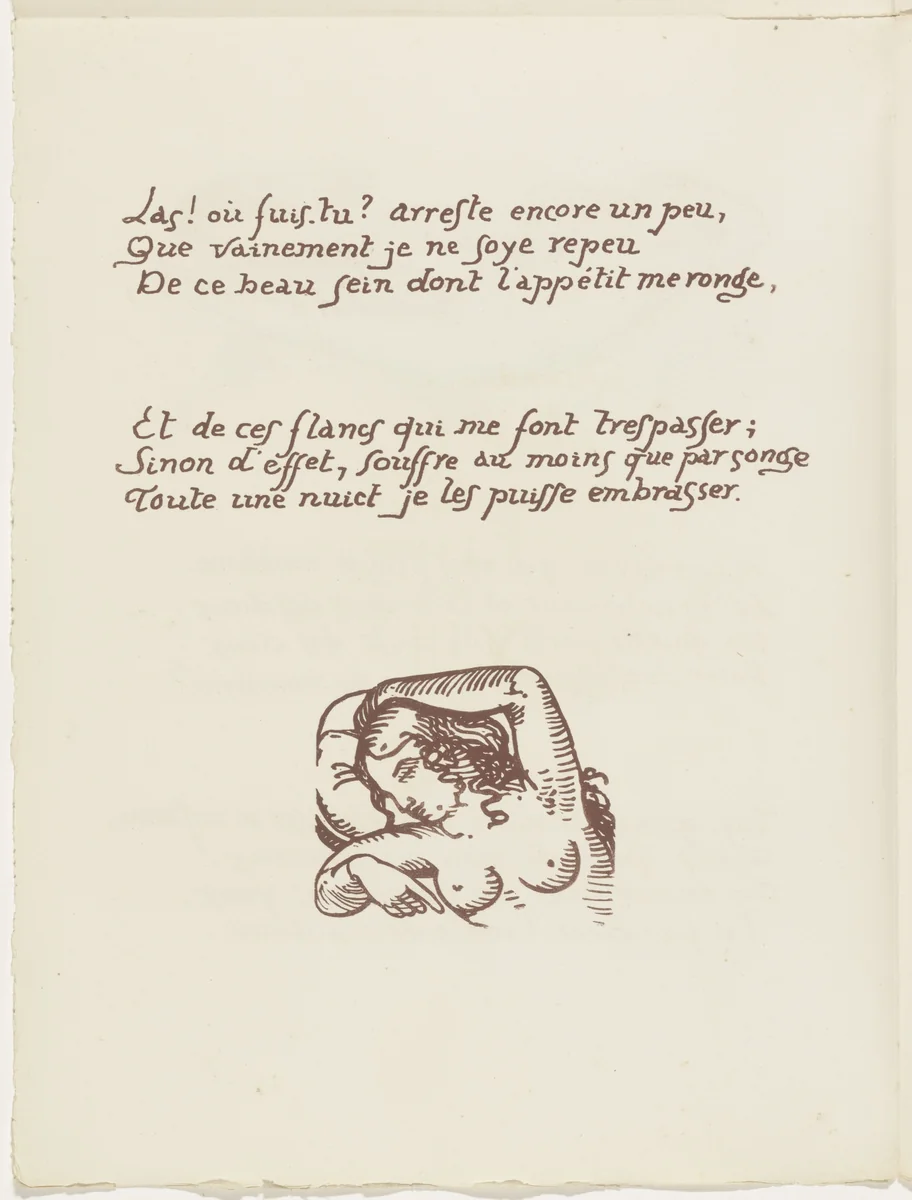 Las! où fuis-tu? arreste encore un peu,
Que vainement je ne soye repeu
De ce beau sein dont l'appétit me ronge,
Et de ces flancs qui me font trespasser;
Sinon d'effet, souffre au moins que par songe
Toute une nuict je les puisse embrasser.